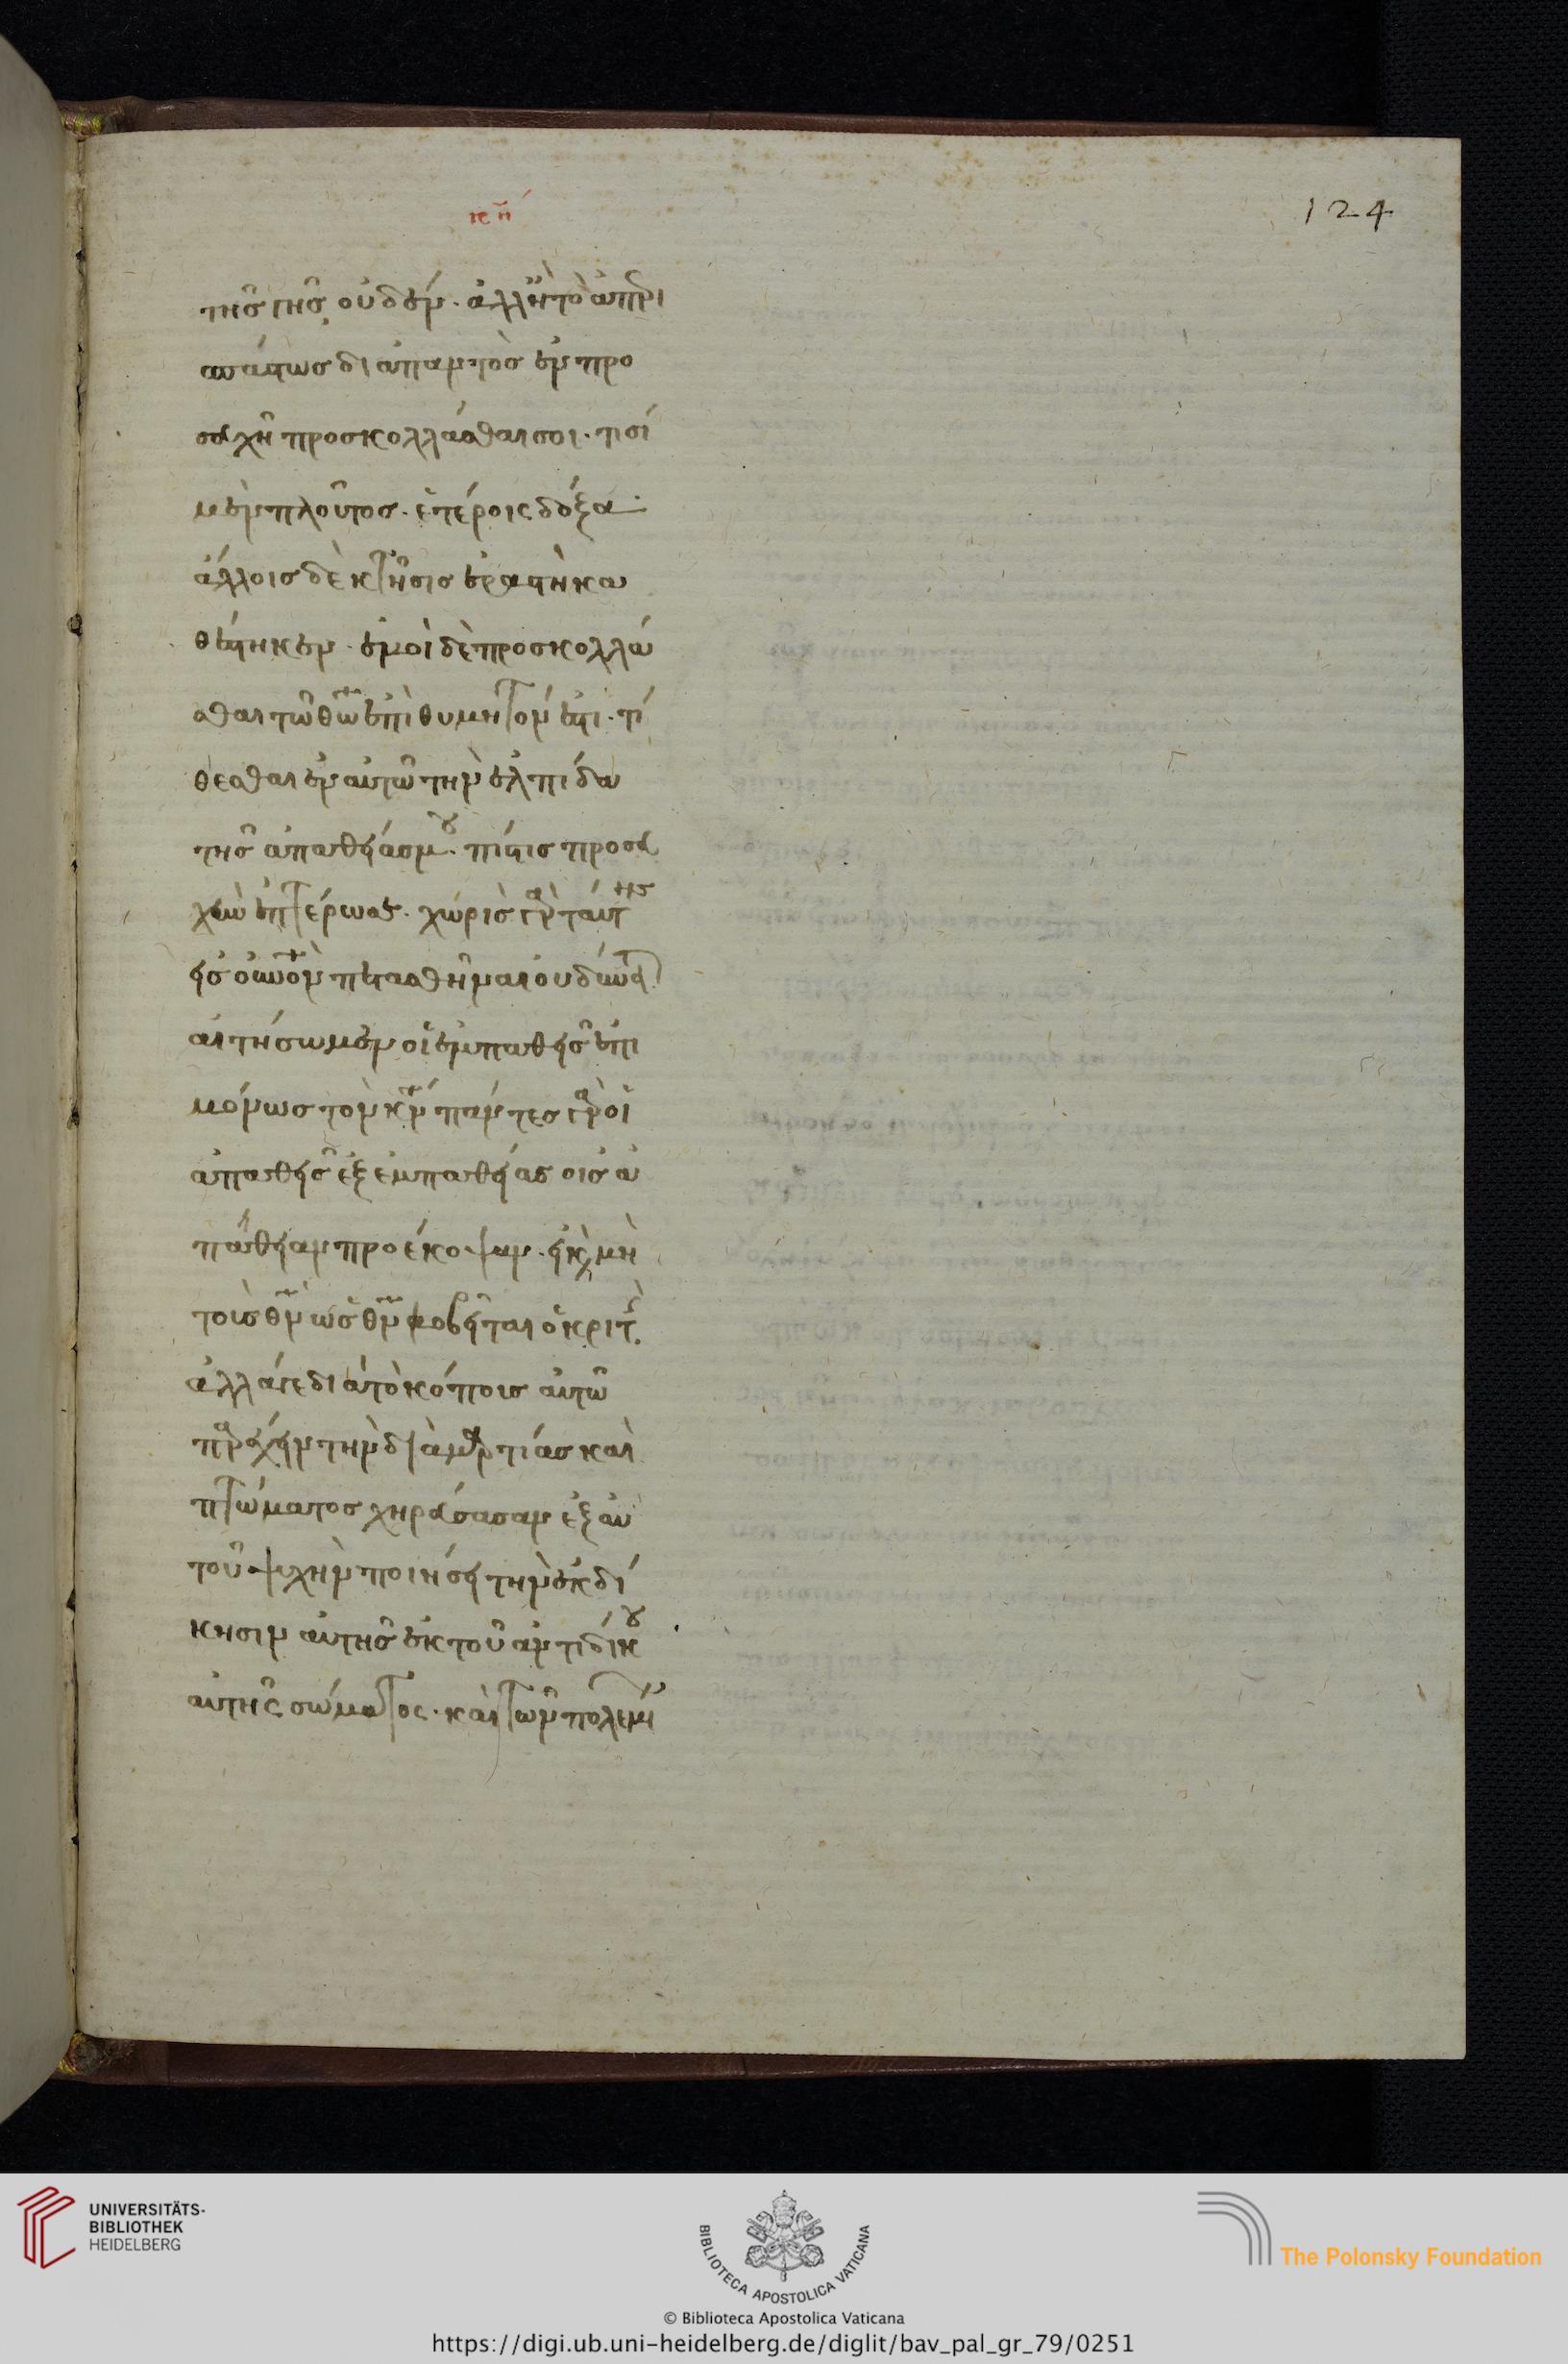 κη
124
τῆς γῆς οὐδέν. ἀλλ' ἢ τὸ ἀπερι
σπάστως διαπαντὸς ἐν προ
σευχῆ προσκολλάσθαι σοι. τισὶ
μὲν πλοῦτος. ἑτέροις δόξα.
ἄλλοις δὲ κτῆσις ἐραστὴ κα
θέστηκεν. ἐμοὶ δὲ προσκολλᾶ
σθαι τῶ θω ἐπιθυμητόν ἐστι. τί
θεσθαι ἐν αὐτῶ τὴν ἐλπίδα
τῆς ἀπαθείας μου. πίστις προσευ
χὴν ἐπτέρωσε. χωρὶς γὰρ ταύτης
εἰς οὐνον πετασθῆναι οὐ δύναται
αἰτήσωμεν οἱ ἐμπαθεῖς ἐπι
μόνως τὸν κν πάντες γὰρ οἱ
ἀπαθεῖς ἐξ ἐμπαθείας εἰς ἀ
πάθειαν προέκοψαν. εἰ καὶ μὴ
τοῖς θν ὡς θν φοβεῖται ὁ κριτὴς
ἀλλά γε διὰ τὸ κόποις αὐτῶ
παρέχειν τὴν δι' ἁμαρτίας καὶ
πτώματος χηρεύσασαν ἐξ αὐ
τοῦ ψυχὴν ποιήσει τὴν ἐκδί
κησιν αὐτῆς ἐκ τοῦ ἀντιδίκου
αὐτῆς σώματος. καὶ τῶν πολεμί
UNIVERSITÄTS-
BIBLIOTHEK
HEIDELBERG
BIBLIOTECA APOSTOLICA VATICANA
The Polonsky Foundation
© Biblioteca Apostolica Vaticana
https://digi.ub.uni-heidelberg.de/diglit/bav_pal_gr_79/0251